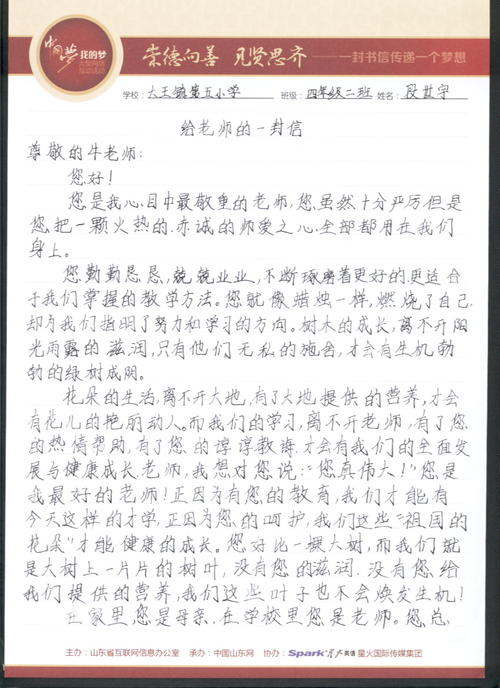 中国梦 我的梦
大型网络
互动活动
崇德向善 见贤思齐 一封书信传递一个梦想
学校:大王镇第五小学 班级:四年级二班 姓名:段世宇
给老师的一封信
尊敬的牛老师:
您好!
您是我心目中最敬重的老师,您虽然十分严厉但是
您把一颗火热的.赤诚的师爱之心.全部都用在我们
身上。
您勤勤恳恳,兢兢业业,不断琢磨着更好的.更适合
于我们掌握的教学方法。您就像蜡烛一样,燃烧了自己
却为我们指明了努力和学习的方向。树木的成长,离不开阳
光雨露的滋润,只有他们无私的施舍,才会有生机勃
勃的绿树成阴。
花朵的生活,离不开大地,有了大地提供的营养,才会
有花儿的艳丽动人。而我们的学习,离不开老师,有了您
的热情帮助,有了您的谆谆教诲.才会有我们的全面发
展与健康成长.老师,我想对您说:“您真伟大!”您是
我最好的老师!正因为有您的教育,我们才能有
今天这样的才学,正因为您的呵护,我们这些“祖国的
花朵”才能健康的成长。您好比一棵大树,而我们就
是大树上一片片的树叶,没有您的滋润.没有您给
我们提供的营养,我们这些叶子也不会焕发生机!
在家里您是母亲.在学校里您是老师。您总
主办:山东省互联网信息办公室 承办:中国山东网 协办:Spark星火英语 星火国际传媒集团